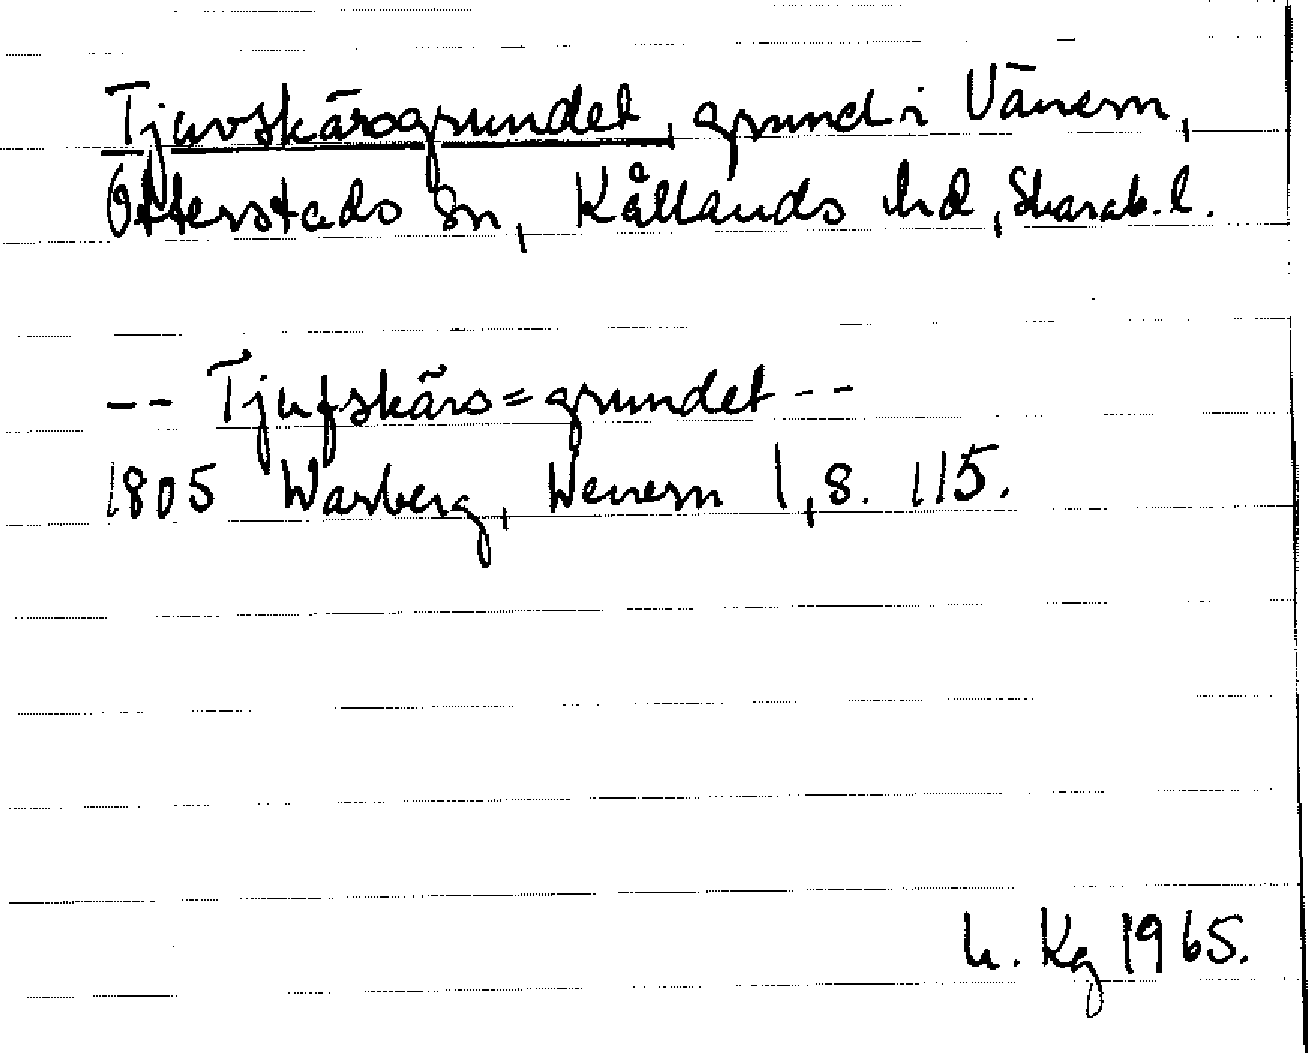 Tjuvskärsgrundet, grund i Vänern,
Otterstads sn, Kållands hd, Skarab. l.
-- Tjufskärs=grundet --
1805 Warberg, Wenern 1, s. 115.
h. Kg 1965.